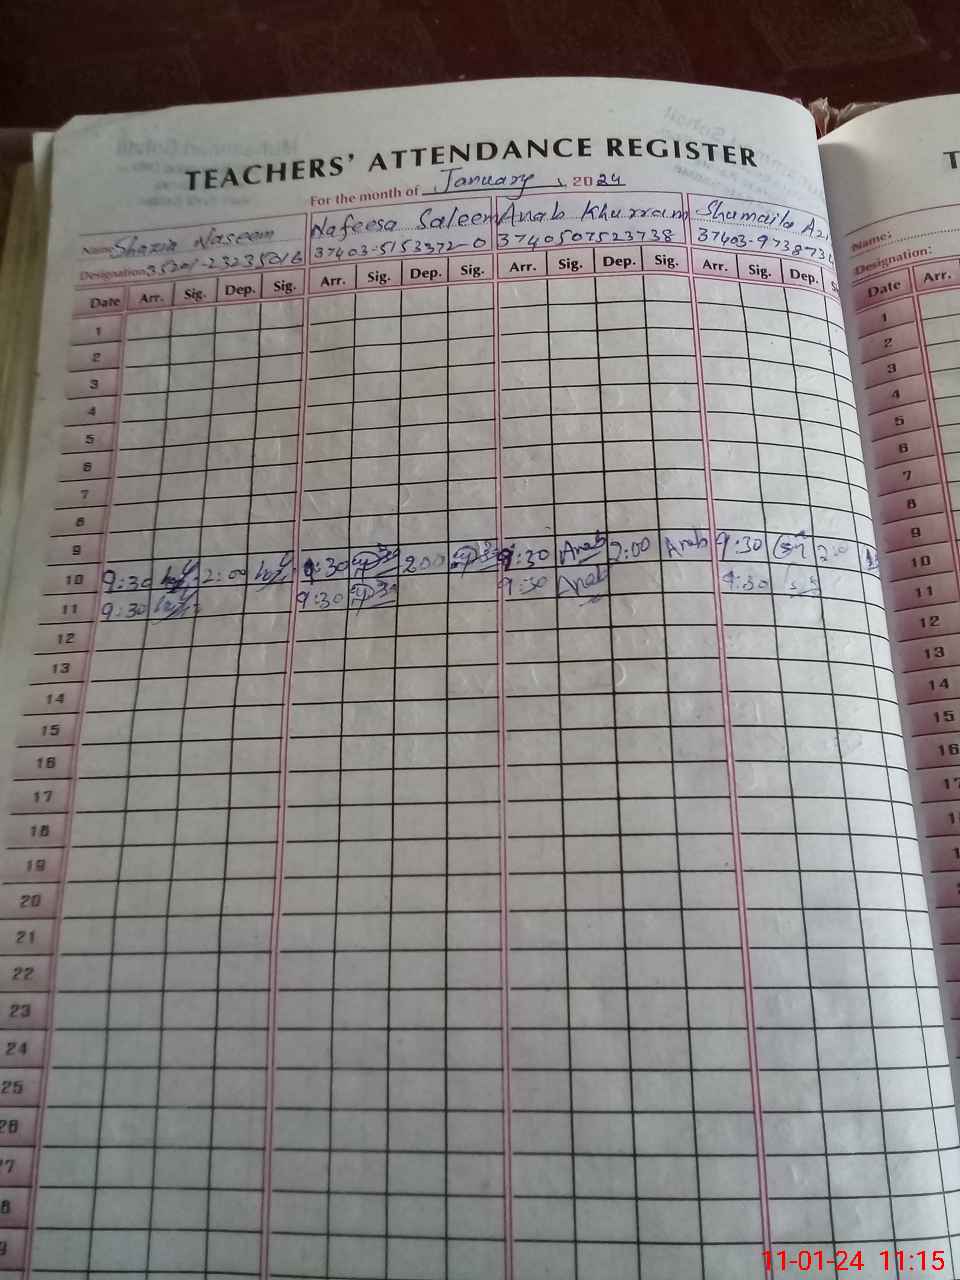 TEACHERS' ATTENDANCE REGISTER
For the month of January 2024
Name Shazia Naseem Nafeesa Saleem Anab Khurram Shumaila
Designation 37403-5153372-0 3740507523738 37403-973873
Date Arr. Sig. Dep. Sig. Arr. Sig. Dep. Sig. Arr. Sig. Dep. Sig. Arr. Sig. Dep.
1
2
3
4
5
6
7
8
9
10 9:30 2:00 9:30 2:00 9:30 Anab 2:00 Anab 9:30
11 9:30 9:30 9:30 Anab 9:30
12
13
14
15
16
17
18
19
20
21
22
23
24
25
Name:
Designation:
Date Arr.
1
2
3
4
5
6
7
8
9
10
11
12
13
14
15
16
11-01-24 11:15